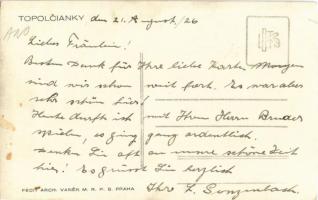 TOPOLČIANKY den 21. August/26
Liebes Fräulein!
Besten Dank für Ihre liebe Karte. Morgen
sind wir schon weit fort. Es war aber
sehr schön hier!
Heute durfte ich mit Ihrem Herrn Bruder
spielen, es ging ganz ordentlich.
Denken Sie oft an unsere schöne Zeit
hier! Es grüsst Sie herzlich
Ihre
FEDT. ARCH. VANĚK M. R. P. S. PRAHA